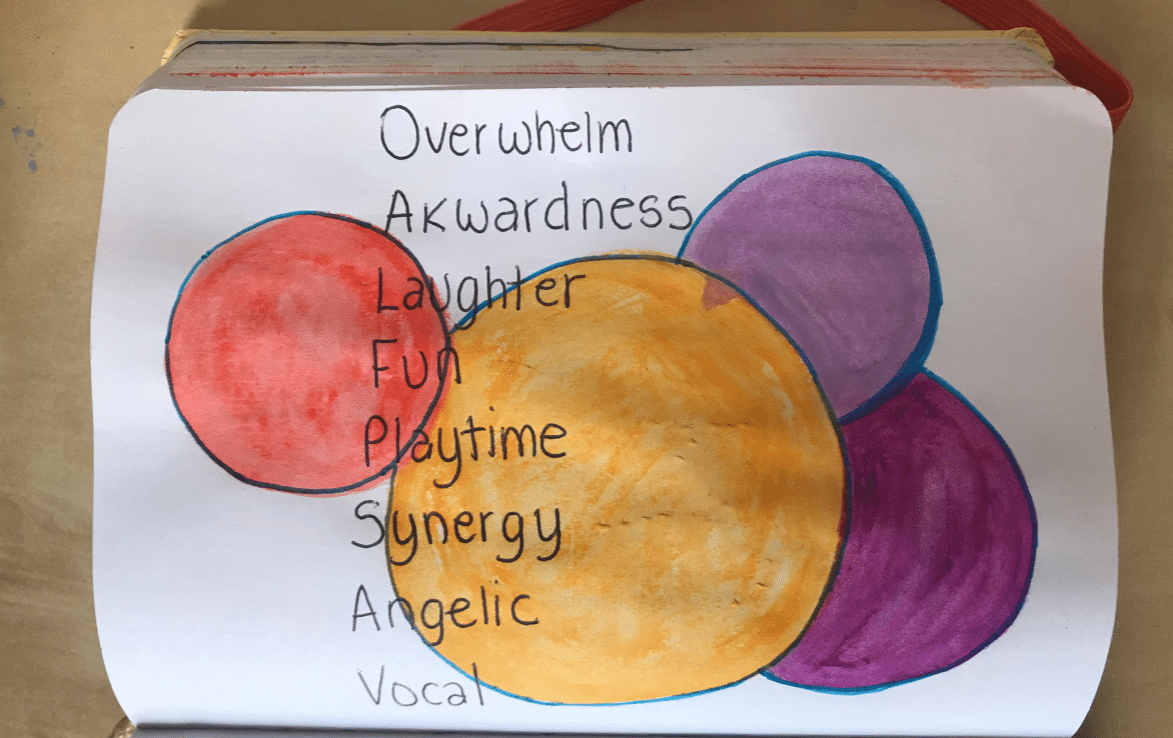 Overwhelm
Akwardness
Laughter
Fun
Playtime
Synergy
Angelic
Vocal